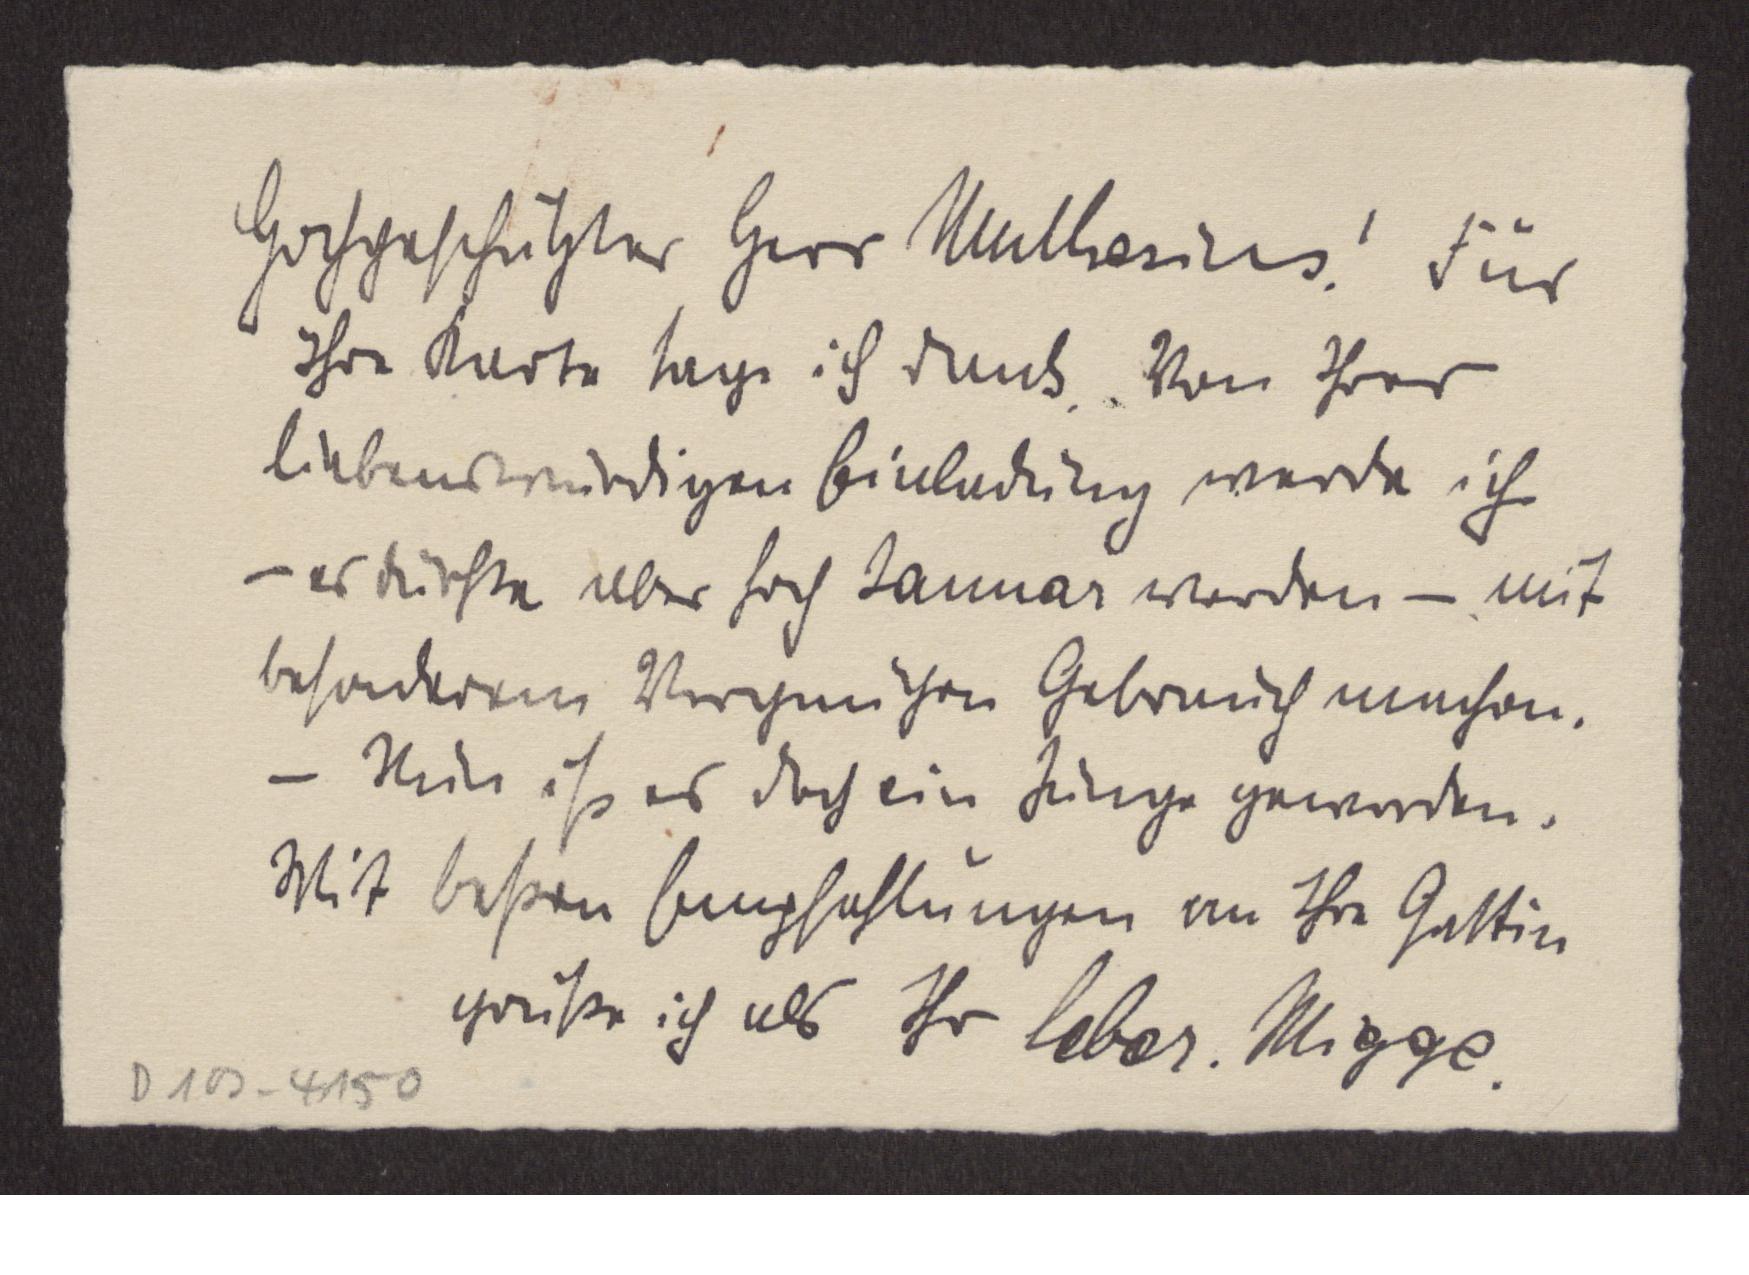 Hochgeschätzter Herr Muthesius! Für
Ihre Karte sage ich dank. Von Ihrer
liebenswürdigen Einladung werde ich
– es dürfte aber hoch Januar werden – mit
besonderem Vergnügen Gebrauch machen.
– Nun ist es doch ein Junge geworden.
Mit besten Empfehlungen an Ihre Gattin
grüße ich als Ihr Leber. Migge.
D 102-4150